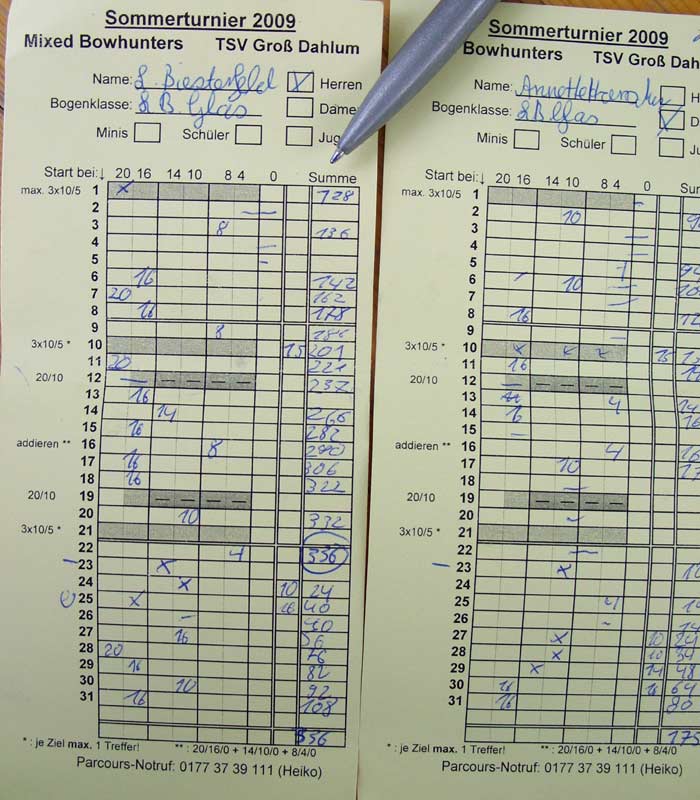 Sommerturnier 2009
Mixed Bowhunters TSV Groß Dahlum
Name: L. Biesterfeld X Herren
Bogenklasse: LB Glas Dame
Minis Schüler Jug
Start bei:↓ 20 16 14 10 8 4 0 Summe
max. 3x10/5 1 X 128
2 —
3 8 136
4 —
5 -
6 16
7 20 162
8 16 178
9 8 186
3x10/5 * 10 15 201
11 20 221
20/10 12 —
13 16 237
14 14
15 16 282
addieren ** 16 8 290
17 16 306
18 16 322
20/10 19 — — — —
20 10 332
3x10/5 * 21
22 4 336
— 23 X
24 X 10 24
25 X 16 40
26 – 40
27 16 56
28 20 76
29 16
30 10 92
31 16 108
* : je Ziel max. 1 Treffer! ** : 20/16/0 + 14/10/0 + 8/4/0
Parcours-Notruf: 0177 37 39 111 (Heiko)
Sommerturnier 2009
Bowhunters TSV Groß Dah
Name: H
Bogenklasse: LB Glas X D
Minis Schüler Ju
Start bei:↓ 20 16 14 10 8 4 0 Su
max. 3x10/5 1 -
2 10
3
4 —
5 —
6 10
7 —
8 16
9 –
3x10/5 * 10 x x x 15
11 16
20/10 12 — — — — —
13 4
14 16
15 –
addieren ** 16 4
17 10
18 —
20/10 19 — — — —
20 –
3x10/5 * 21
22 —
— 23 X
24
25 4
26 -
27 X 10 24
28 X 10 34
29 X 14 48
30 16 16 64
31 16 80
175
* : je Ziel max. 1 Treffer! ** : 20/16/0 + 14/10/0 + 8/4/0
Parcours-Notruf: 0177 37 39 111 (Heiko)